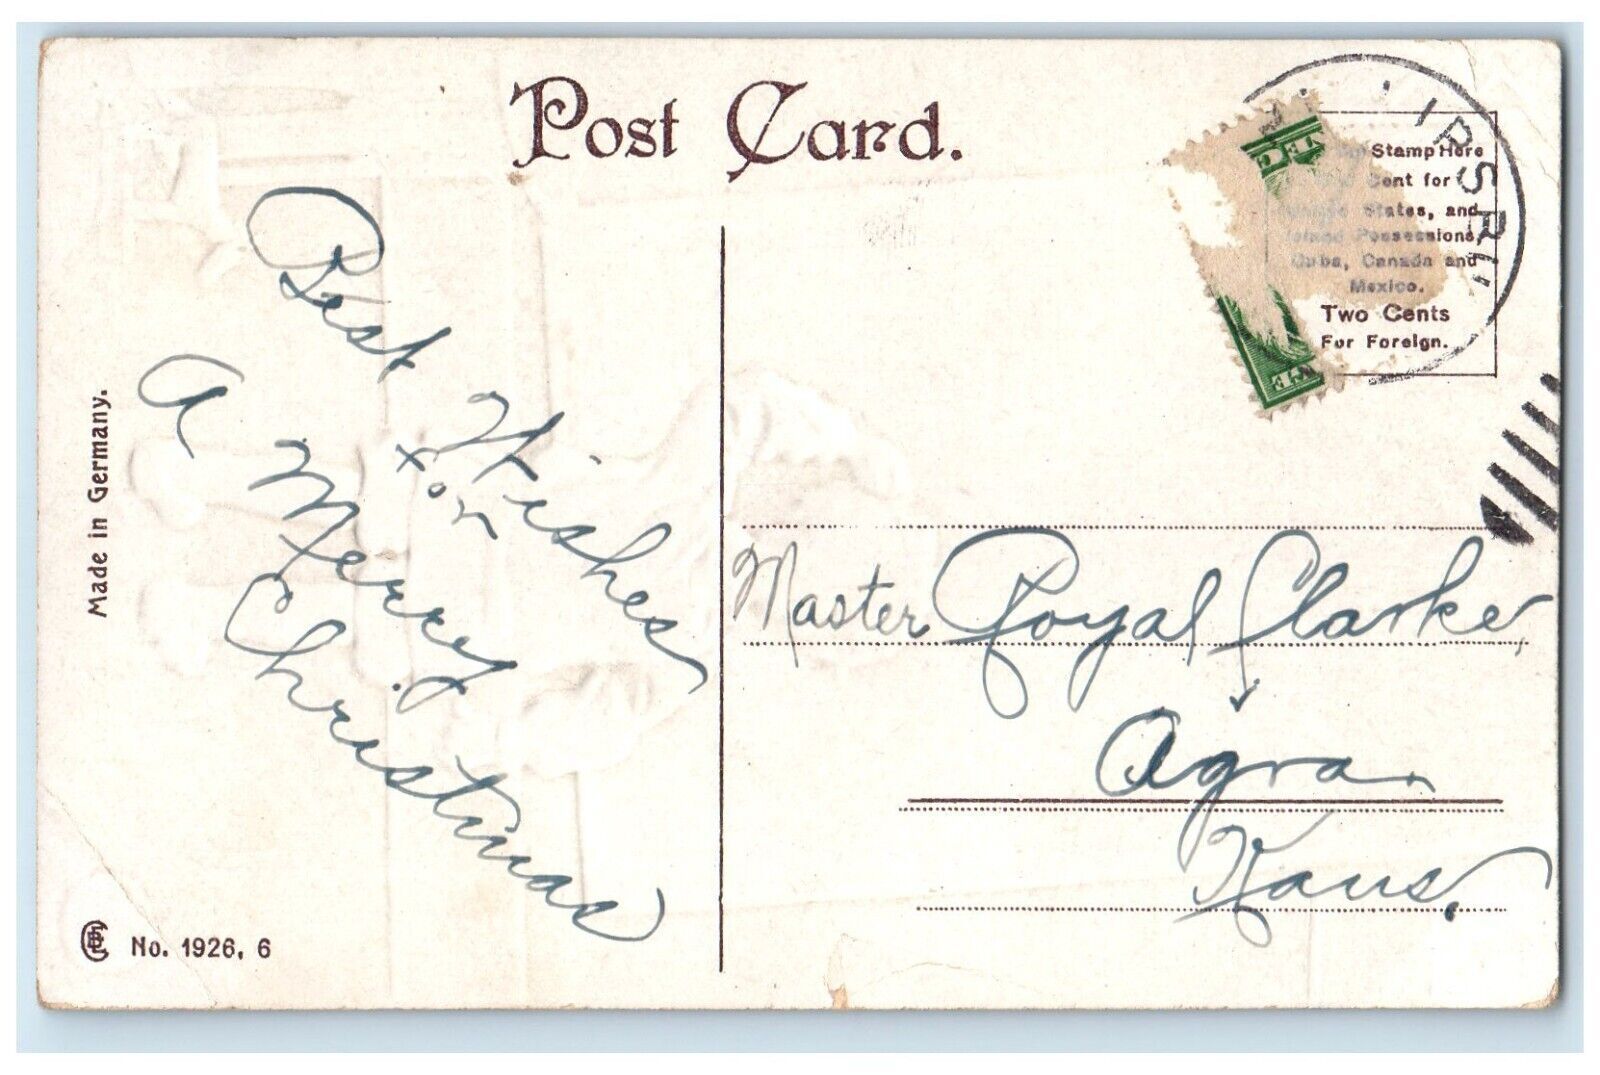 Post Card.
Stamp Here
Cent for
States, and
Island Possessions,
Cuba, Canada and
Mexico.
Two Cents
For Foreign.
Best Wishes
for
A Merry
Christmas
Made in Germany.
No. 1926, 6
Master Royal Clarke,
Agra.
Kans.